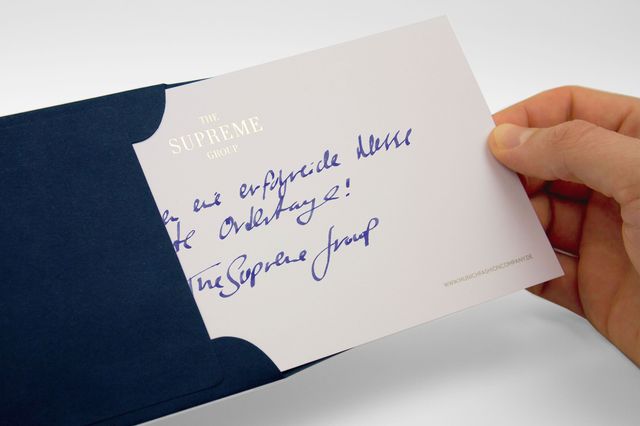 THE
SUPREME
GROUP
en eine erfolgreiche Messe
te Ordertage!
The Supreme Group
WWW.MUNICHFASHIONCOMPANY.DE